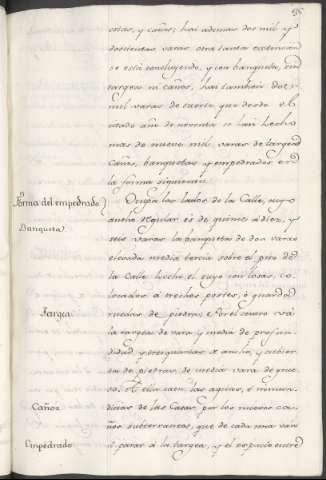 citas, y caños; hai ademas dos mil y
doscientas varas otra tanta extencion
se está concluyendo, y con banqueta, sin
targea ni caños, hai tambien dos
mil varas de suerte que desde el
citado año de noventa se han hecho
mas de nueve mil varas de targea
caños, banquetas y empedrados en
la forma siguiente.
Forma del empedrado
Ocupa los lados de la Calle, cuyo
ancho regular es de quince a diez, y
Banqueta
seis varas la banqueta de dos varas
elevada media tercia sobre el piso de
la Calle hecha el suyo con losas, co-
locados a trechos postes, o guarda
ruedas de piedra; Por el centro vá
Targea
la targea de vara y media de profun-
didad, y tres quartas de ancho, y cubier-
ta de piedras de media vara de grue-
so. A ella caen las aguas, e inmun-
dicias de las Casas, por los mismos ca-
Caños
ños subterraneos, que de cada una van
Empedrado
á parar á la targea, y el espacio entre